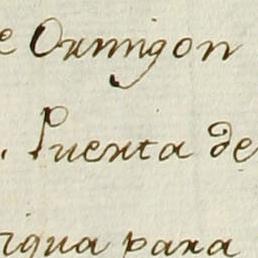 e Ormigon
. Puerta de
rigua para